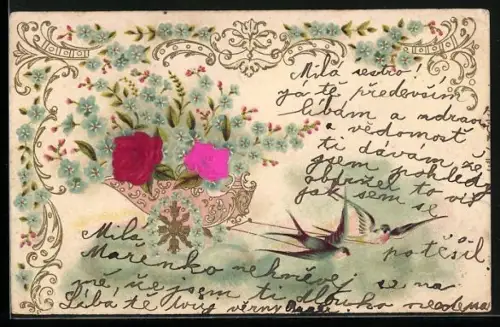 Milá sestro!
já tě především
líbám a zdraví
a vědomost
ti dávám že
jsem pohled
obdržel to víš
jak sem se
potěšil
Milá
Mařenko nehněvej se na
mě, že jsem ti dlouho nedepsal
Líbá tě tvůj věrný